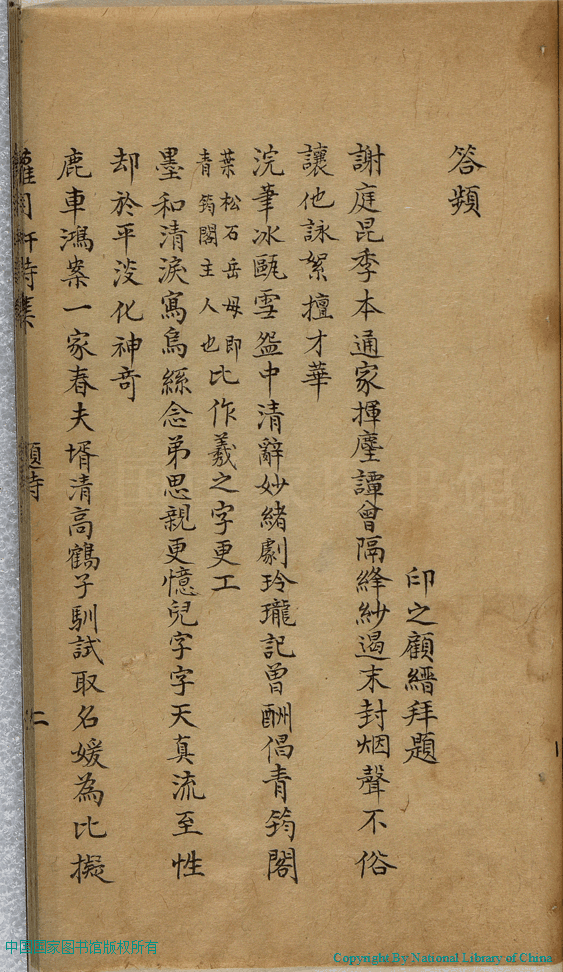 答頻
印之顧縉拜題
謝庭昆季本通家揮麈譚曾隔絳紗遏末封烟聲不俗
讓他詠絮擅才華
浣筆冰甌雪盌中清辭妙緒劇玲瓏記曾酬倡青筠閣
葉松石岳母即
青筠閣主人也
比作羲之字更工
墨和清淚寫烏絲念弟思親更憶兒字字天真流至性
却於平淡化神奇
鹿車鴻案一家春夫壻清高鶴子馴試取名媛為比擬
月軒詩集
題詩
二
中国国家图书馆版权所有
Copyright By National Library of China